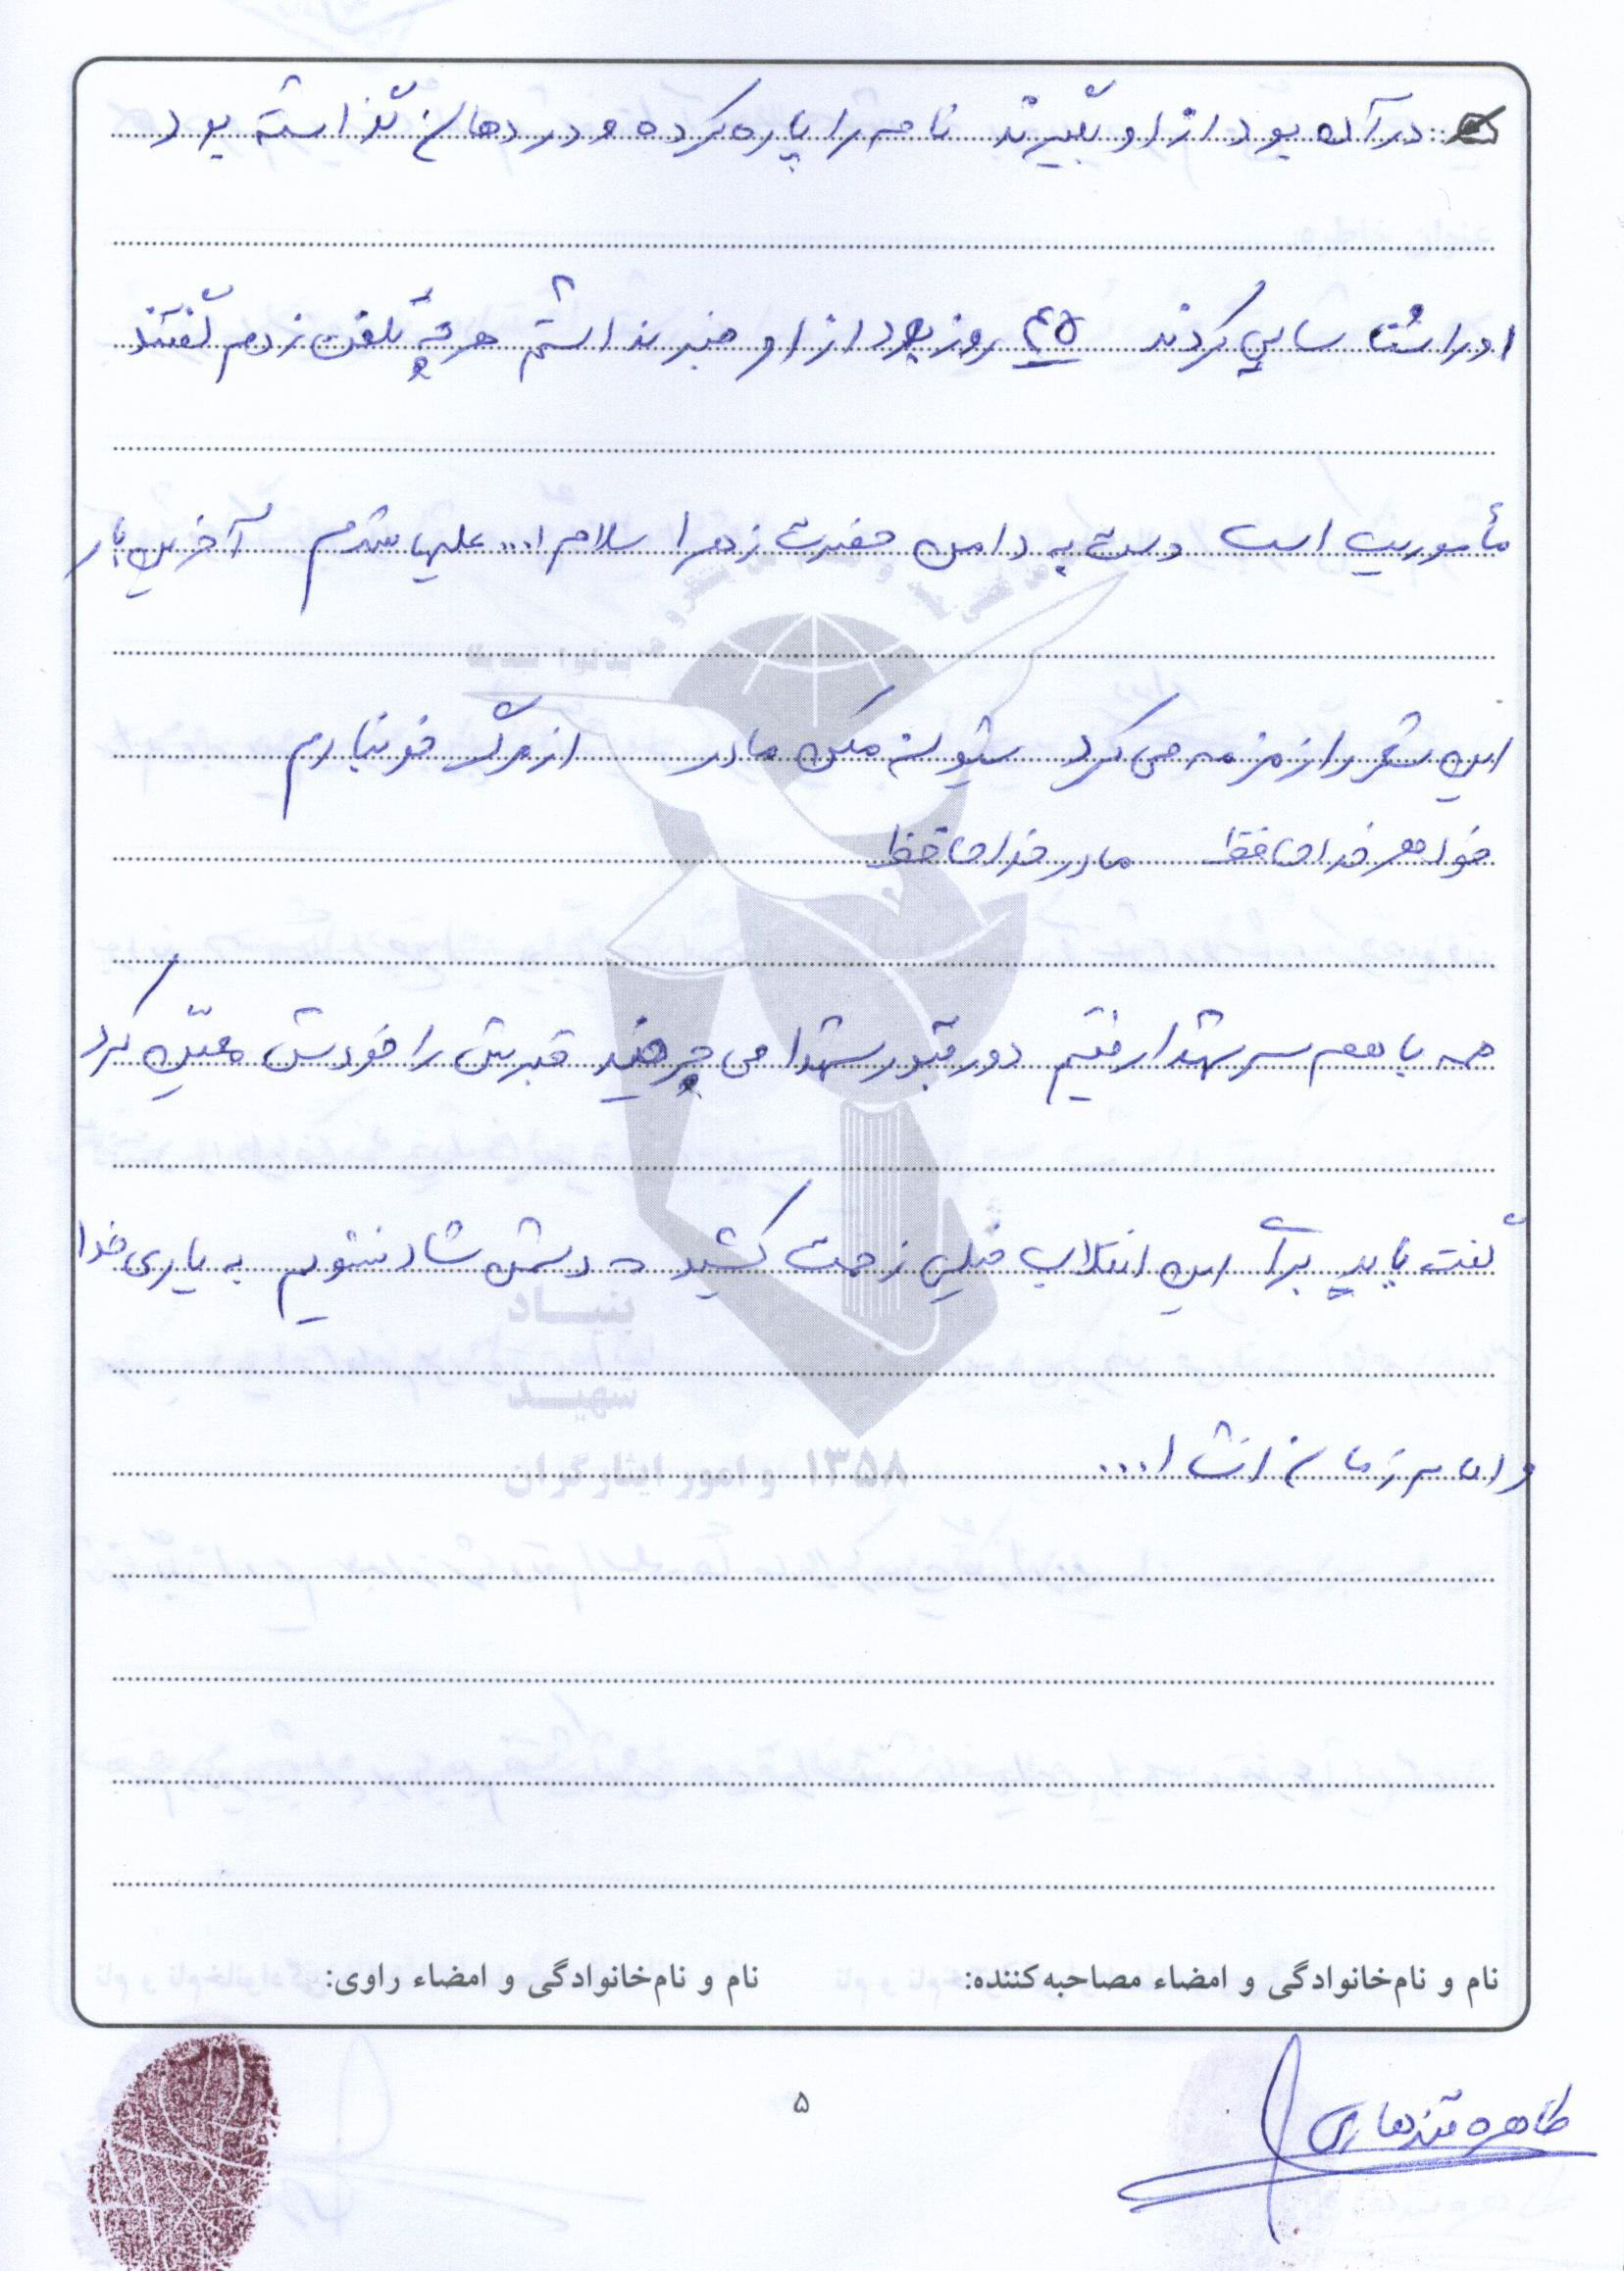 درآن بود از او بگیرند نامه را پاره کرده و در دهان گذاشته بود
او را شناسایی کردند ۴۵ روز بود از او خبر نداشتم هر چه تلفن زدم گفتند
مأموریت است دست به دامن حضرت زهرا سلام ا... علیها شدم آخرین بار
این شعر را زمزمه می کرد شیون مکن مادر از مرگ خونبارم
خواهر خداحافظ مادر خداحافظ
همه با هم سر شهدا رفتیم دور قبور شهدا می چرخید قبرش را خودش معین کرد
گفت باید برای این انقلاب خیلی زحمت کشید دشمن شاد نشویم به یاری خدا
و امام زمان انشا ا...
بنیاد
شهید
۱۳۵۸ و امور ایثارگران
نام و نام‌خانوادگی و امضاء مصاحبه‌کننده: نام و نام‌خانوادگی و امضاء راوی:
۵
طاهره قندهاری